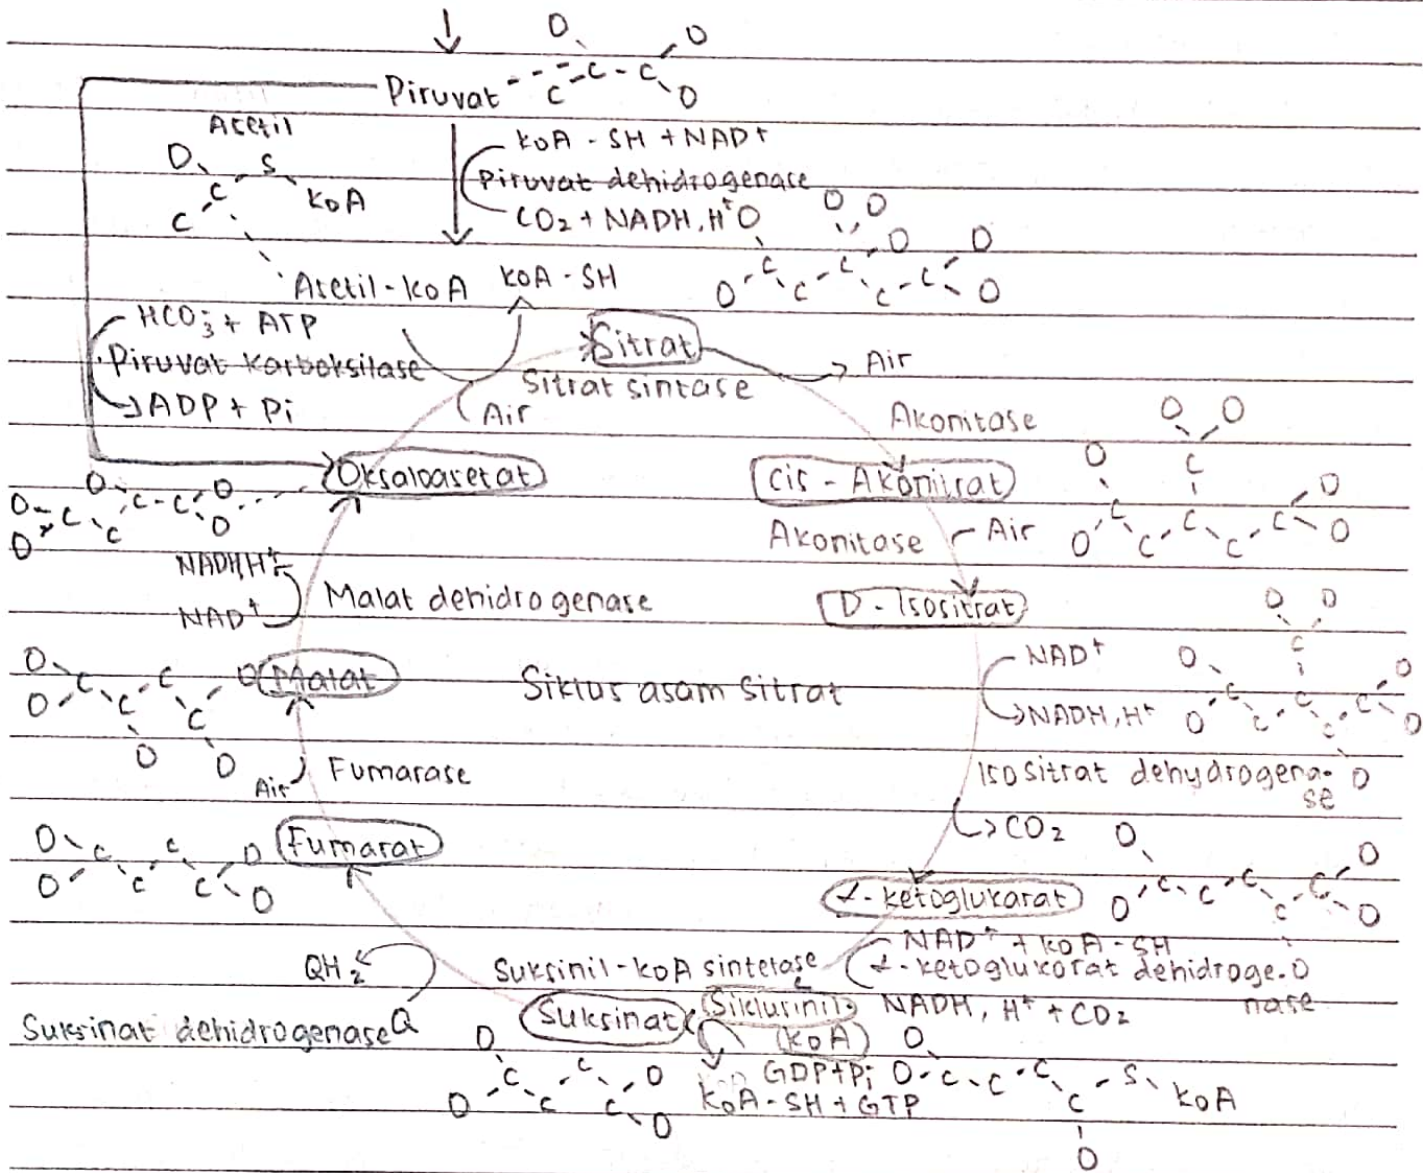 Piruvat
Acetil
KoA - SH + NAD+
Piruvat dehidrogenase
CO2 + NADH, H+
O S
C KoA
C
O O
C - C
C O
Acetil - KoA KoA - SH
HCO3- + ATP
Piruvat karboksilase
ADP + Pi
Sitrat
Sitrat sintase
Air
Air
Akonitase
Oksaloasetat
Cis - Akonitrat
Akonitase
Air
NADH,H+
NAD+
Malat dehidrogenase
D - Isositrat
NAD+
NADH, H+
Malat
Siklus asam sitrat
Isositrat dehydrogena-
se
Air
Fumarase
CO2
Fumarat
α - ketoglukarat
NAD+ + KoA - SH
α - ketoglukorat dehidroge.
nase
NADH, H+ + CO2
QH2
Suksinil - KoA sintetase
Suksinat dehidrogenase Q
Suksinat
Siklusinil
(KoA)
GDP+Pi
KoA - SH + GTP
S
KoA